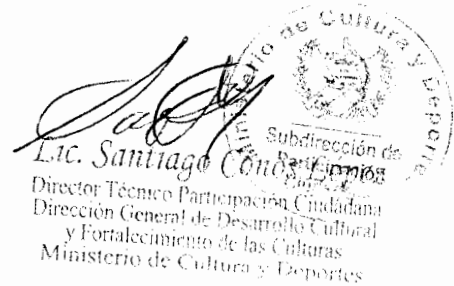 Ministerio de Cultura y Deporte
Subdirección de
Participación
Lic. Santiago
Director Técnico Participación Ciudadana
Dirección General de Desarrollo Cultural
y Fortalecimiento de las Culturas
Ministerio de Cultura y Deportes